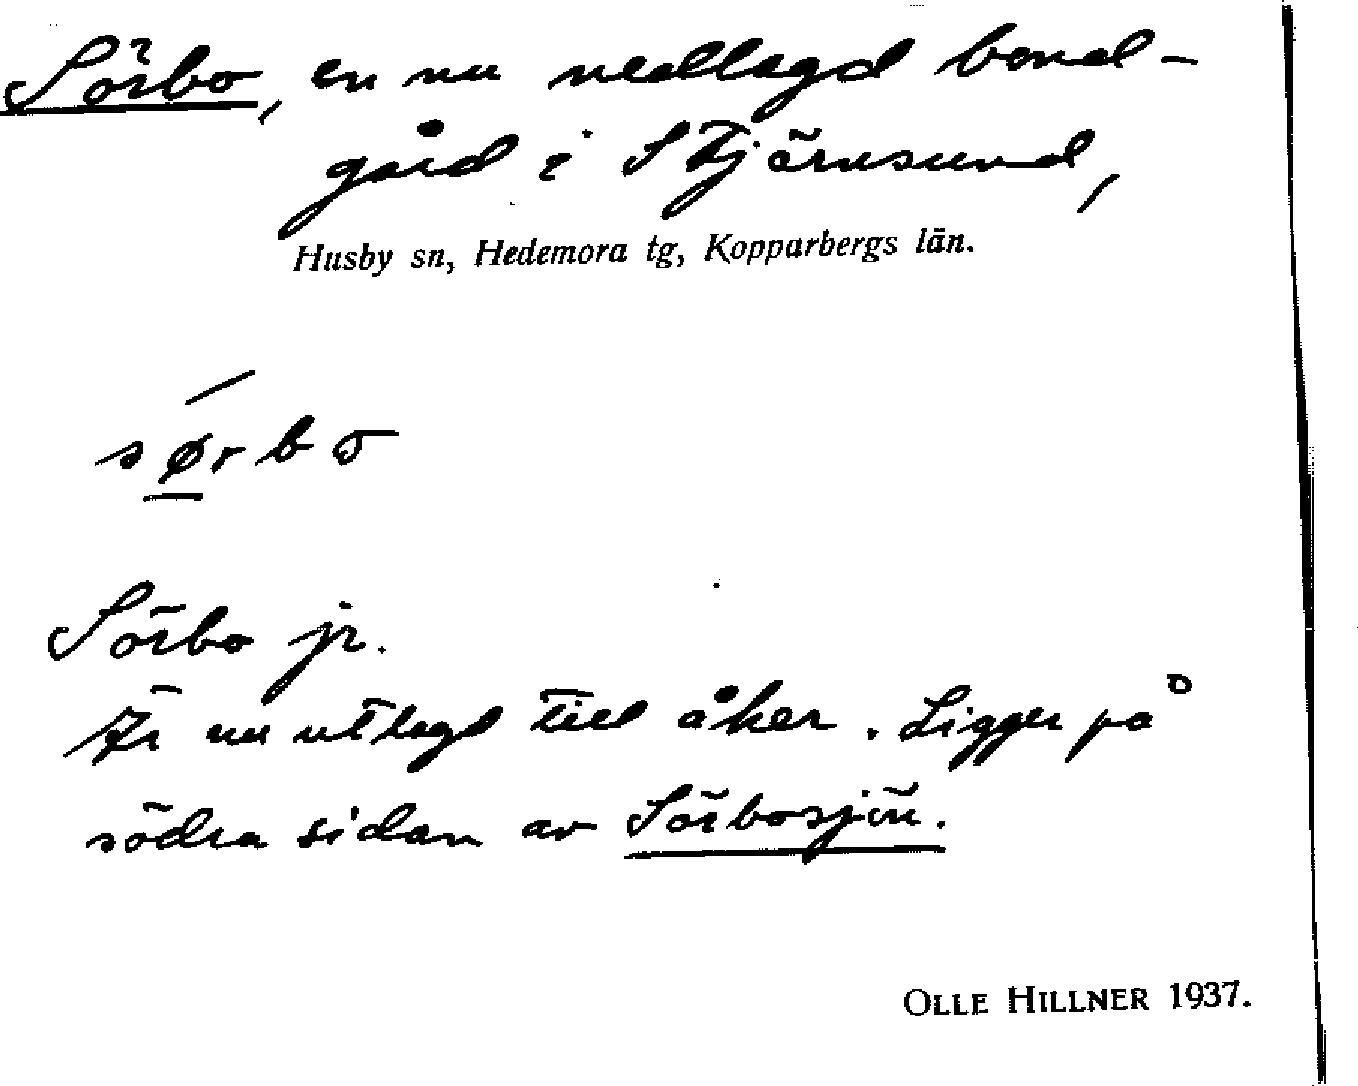 Sörbo, en nu nedlagd bond-
gård i Stjärnsund,
Husby sn, Hedemora tg, Kopparbergs län.
sørbo
Sörbo jr.
Är nu utlagd till åker. Ligger på
södra sidan av Sörbosjön.
OLLE HILLNER 1937.